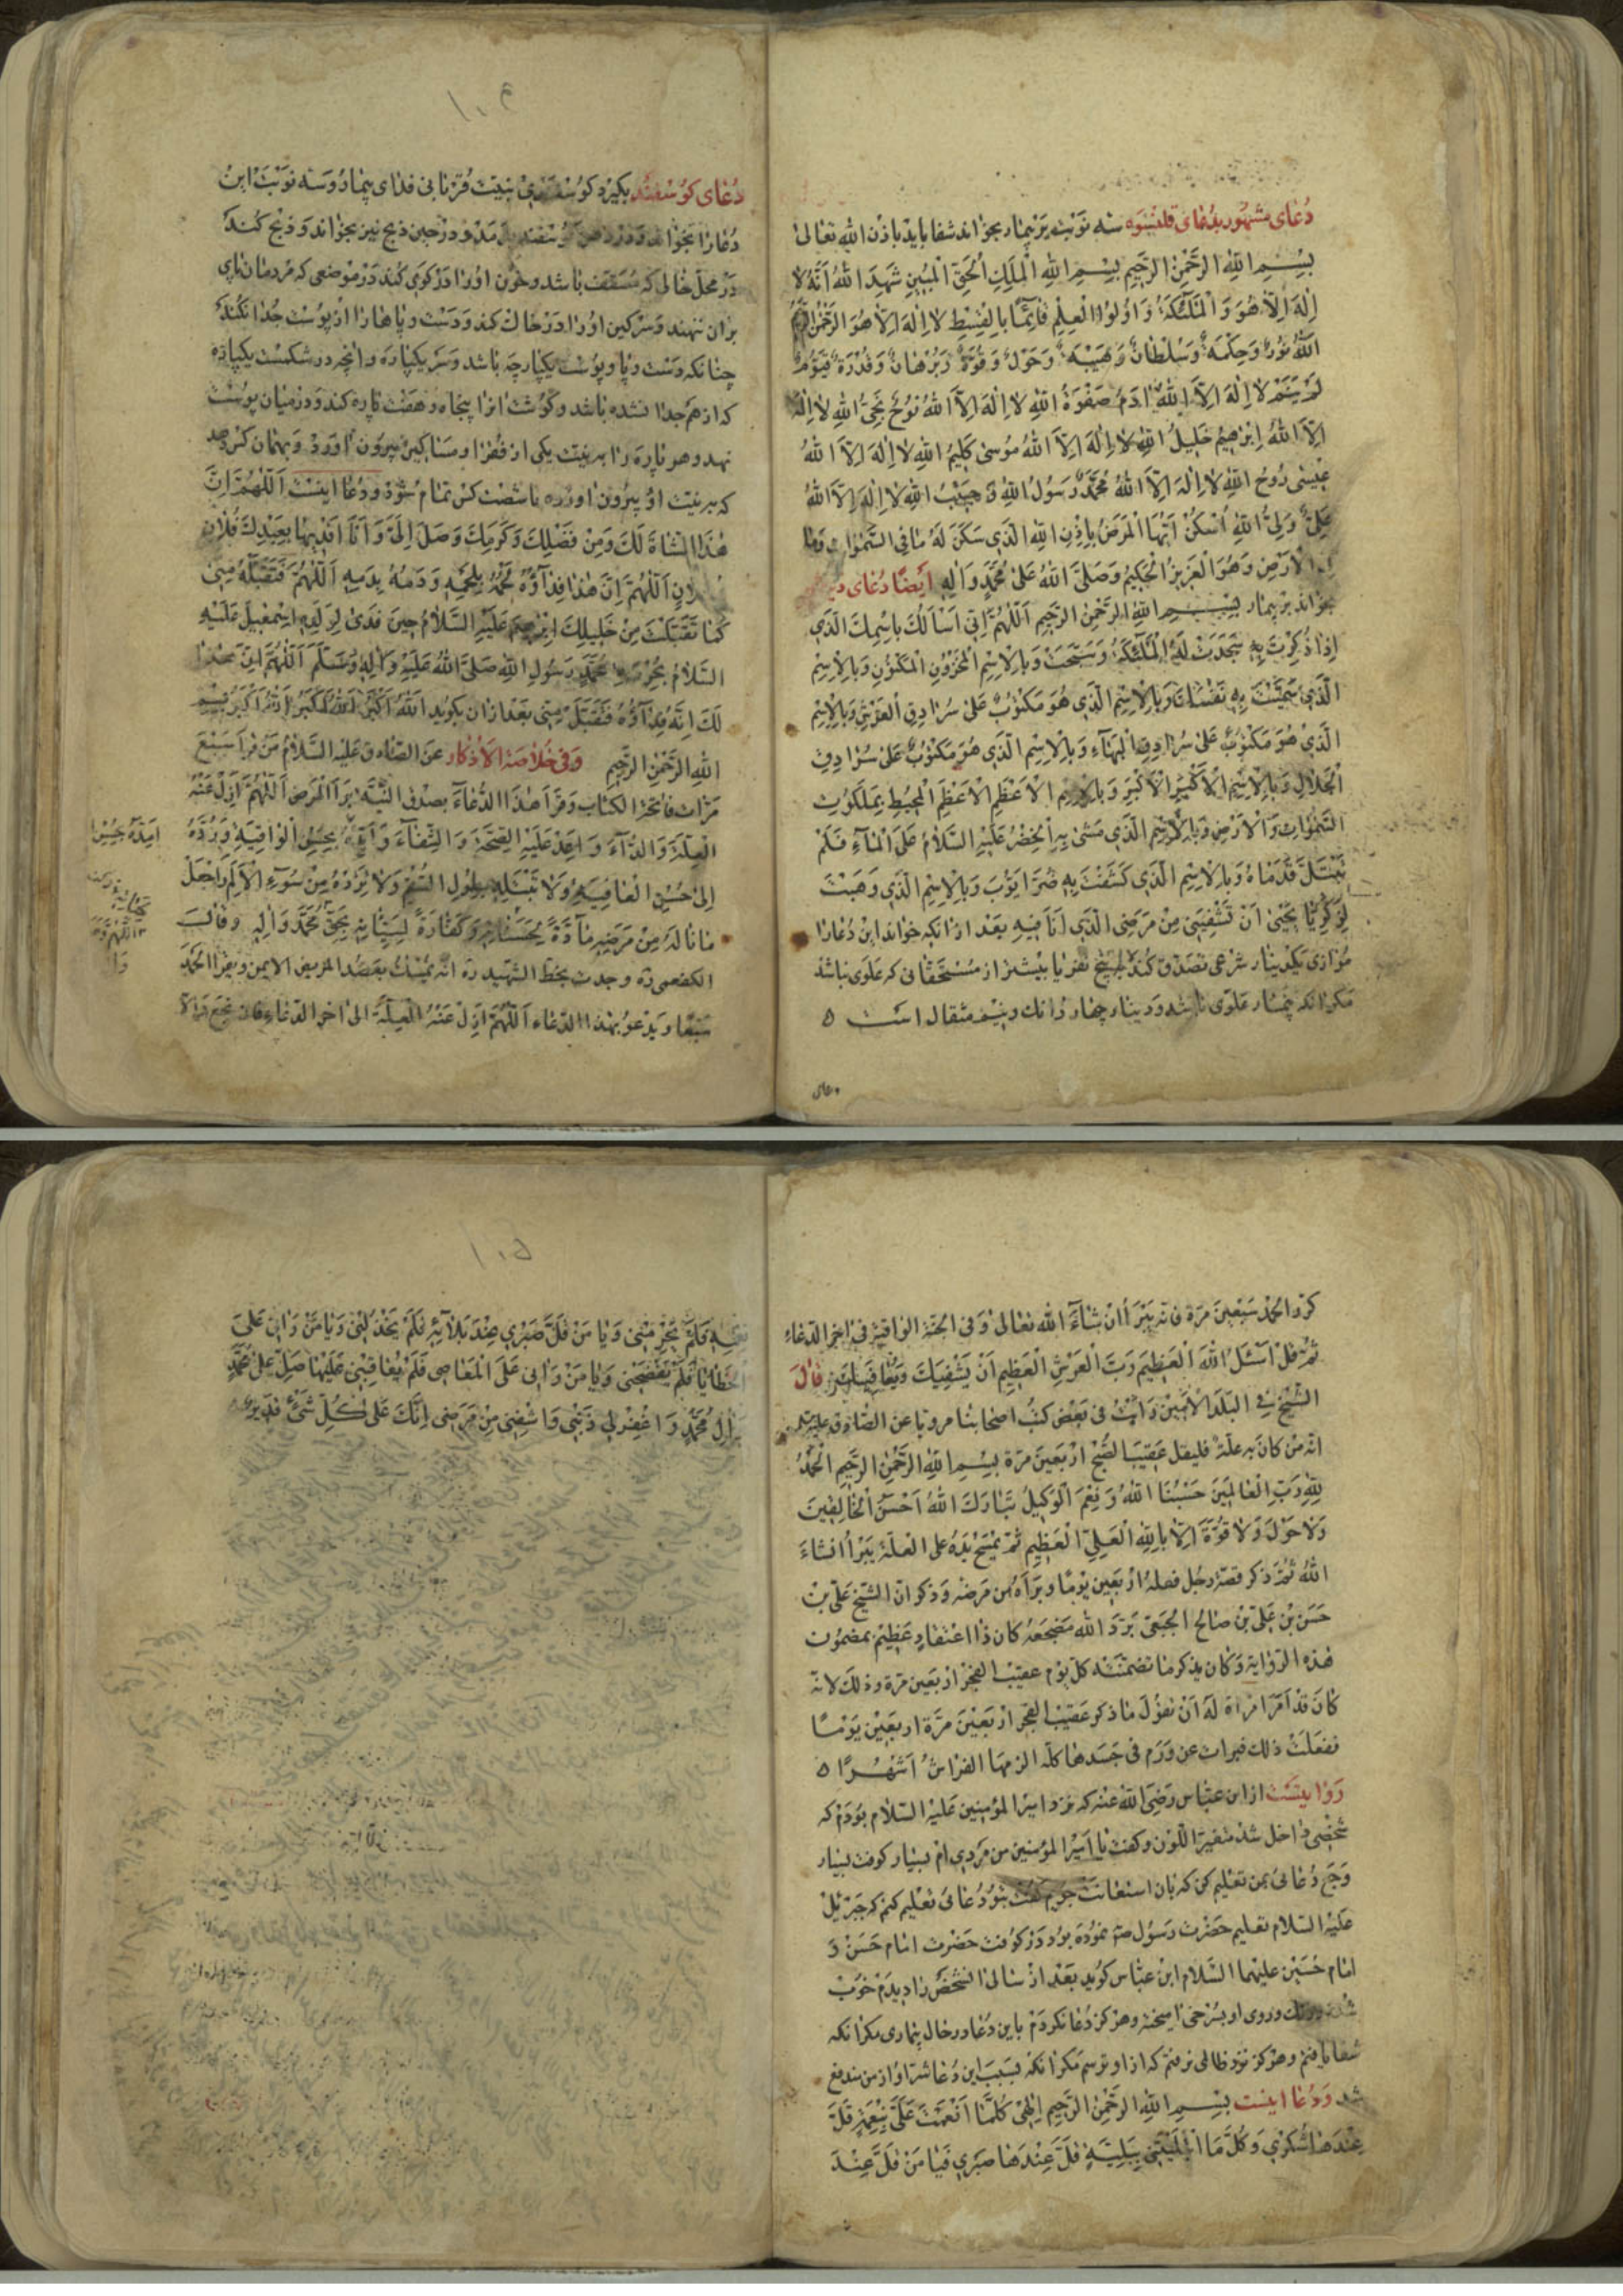 دُعای مشهور بدُعای قلنسوه سه نوبت بر بیمار بخواند شفا یابد باذن الله تعالی
بِسْمِ اللهِ الرَّحْمٰنِ الرَّحِيمِ بِسْمِ اللهِ الْمَلِكِ الْحَقِّ الْمُبِينِ شَهِدَ اللهُ اَنَّهُ لا
اِلٰهَ اِلَّا هُوَ وَالْمَلٰئِكَةُ وَاُولُوا الْعِلْمِ قَائِمًا بِالْقِسْطِ لا اِلٰهَ اِلَّا هُوَ الرَّحْمٰنُ
اللهُ نُورٌ وَحِكْمَةٌ وَسُلْطَانٌ وَهَيْبَةٌ وَحَوْلٌ وَقُوَّةٌ وَبُرْهَانٌ وَقُدْرَةٌ قَيُّومٌ
لَمْ يَنَمْ لا اِلٰهَ اِلَّا اللهُ اٰدَمُ صَفْوَةُ اللهِ لا اِلٰهَ اِلَّا اللهُ نُوحٌ نَجِيُّ اللهِ لا اِلٰهَ
اِلَّا اللهُ اِبْرٰهِيمُ خَلِيلُ اللهِ لا اِلٰهَ اِلَّا اللهُ مُوسٰى كَلِيمُ اللهِ لا اِلٰهَ اِلَّا اللهُ
عِيسٰى رُوحُ اللهِ لا اِلٰهَ اِلَّا اللهُ مُحَمَّدٌ رَسُولُ اللهِ وَحَبِيبُ اللهِ لا اِلٰهَ اِلَّا اللهُ
عَلِيٌّ وَلِيُّ اللهِ اُسْكُنْ اَيُّهَا الْمَرَضُ بِاِذْنِ اللهِ الَّذِي سَكَنَ لَهُ مَا فِي السَّمٰوَاتِ وَمَا
الْاَرْضِ وَهُوَ الْعَزِيزُ الْحَكِيمُ وَصَلَّى اللهُ عَلٰى مُحَمَّدٍ وَاٰلِهِ اَيْضًا دُعای
بخواند بر بیمار بِسْمِ اللهِ الرَّحْمٰنِ الرَّحِيمِ اَللّٰهُمَّ اِنِّي اَسْاَلُكَ بِاسْمِكَ الَّذِي
اِذَا ذُكِرْتَ بِهِ سَجَدَتْ لَهُ الْمَلٰئِكَةُ وَسَبَّحَتْ وَبِالْاِسْمِ الْمَخْزُونِ الْمَكْنُونِ وَبِالْاِسْمِ
الَّذِي سَمَّيْتَ بِهِ نَفْسَكَ وَبِالْاِسْمِ الَّذِي هُوَ مَكْتُوبٌ عَلٰى سُرَادِقِ الْعَرْشِ وَبِالْاِسْمِ
الَّذِي هُوَ مَكْتُوبٌ عَلٰى سُرَادِقِ الْبَهَاءِ وَبِالْاِسْمِ الَّذِي هُوَ مَكْتُوبٌ عَلٰى سُرَادِقِ
الْجَلَالِ وَبِالْاِسْمِ الْاَكْبَرِ الْاَكْبَرِ وَبِالْاِسْمِ الْاَعْظَمِ الْاَعْظَمِ الْمُحِيطِ بِمَلَكُوتِ
السَّمٰوَاتِ وَالْاَرْضِ وَبِالْاِسْمِ الَّذِي مَشٰى بِهِ الْخِضْرُ عَلَيْهِ السَّلَامُ عَلَى الْمَاءِ فَلَمْ
تَبْتَلَّ قَدَمَاهُ وَبِالْاِسْمِ الَّذِي كَشَفْتَ بِهِ ضُرَّ اَيُّوبَ وَبِالْاِسْمِ الَّذِي وَهَبْتَ
لِزَكَرِيَّا يَحْيٰى اَنْ تَشْفِيَنِي مِنْ مَرَضِيَ الَّذِي اَنَا فِيهِ بعد از آنکه خواند این دُعا را
موازی یکدینار شرعی تصدق کند به پنج نفر یا بیشتر از مستحقانی که علوی نباشد
مگر آنکه بیمار علوی باشد و دینار چهار دانك و نیم مثقال است ٥
دعای
دُعای کوسفند بکیرد کوسفندی بنیت قربانی فدای بیمار و سه نوبت این
دُعا را بخواند و در دهن کوسفند بدمد و در حین ذبح نیز بخواند و ذبح کند
در محل خالی که مسقف باشد و خون او را در کوی کند در موضعی که مردمان پای
بر آن ننهند و سرکین او را در خاك کند و دست و پاها را از پوست جدا نکند
چنانکه دست و پا و پوست یکپارچه باشد و سر یکپاره و آنچه در شکمست یکپاره
که از هم جدا نشده باشد و کوشت او را پنجاه و هفت پاره کند و در میان پوست
نهد و هر پاره را به نیت یکی از فقرا و مساکین بیرون آورد و بهمان کس دهد
که به نیت او بیرون آورده تا شصت کس تمام شود و دُعا اینست اَللّٰهُمَّ اِنَّ
هٰذَا الشَّاةَ لَكَ وَمِنْ فَضْلِكَ وَكَرَمِكَ وَصَلَ اِلَيَّ وَاَنَا اَفْدِيهَا بِعَبْدِكَ فُلَانِ
اَللّٰهُمَّ اِنَّ هٰذَا فِدَاؤُهُ لَحْمُهُ بِلَحْمِهِ وَدَمُهُ بِدَمِهِ اَللّٰهُمَّ فَتَقَبَّلْهُ مِنِّي
كَمَا تَقَبَّلْتَ مِنْ خَلِيلِكَ اِبْرٰهِيمَ عَلَيْهِ السَّلَامُ حِينَ فَدٰى لِوَلَدِهِ اِسْمٰعِيلَ عَلَيْهِ
السَّلَامُ بِحُرْمَةِ مُحَمَّدٍ رَسُولِ اللهِ صَلَّى اللهُ عَلَيْهِ وَاٰلِهِ وَسَلَّمَ اَللّٰهُمَّ اِنَّ هٰذَا
لَكَ اِنَّهُ فِدَاؤُهُ فَتَقَبَّلْ مِنِّي بعد از آن بکوید اللهُ اَكْبَرُ اللهُ اَكْبَرُ اللهُ اَكْبَرُ بِسْمِ
اللهِ الرَّحْمٰنِ الرَّحِيمِ وفی خلاصة الاذکار عن الصادق علیه السلام من قرأ سبع
مرّات فاتحة الکتاب وقرأ هذا الدعاء بصدق النیّة برأ المرض اَللّٰهُمَّ اَزِلْ عَنْهُ
الْعِلَّةَ وَالدَّاءَ وَاَعِدْ عَلَيْهِ الصِّحَّةَ وَالشِّفَاءَ وَاَمِدَّهُ بِحُسْنِ الْوَاقِيَةِ وَرُدَّهُ
اِلٰى حُسْنِ الْعَافِيَةِ وَلَا تَبْتَلِهِ بِطُولِ السُّقْمِ وَلَا تُرْدِهِ مِنْ سُوءِ الْاَلَمِ وَاجْعَلْ
مَا نَالَهُ مِنْ مَرَضِهِ مَادَّةً لِحَسَنَاتِهِ وَكَفَّارَةً لِسَيِّئَاتِهِ بِحَقِّ مُحَمَّدٍ وَاٰلِهِ وقال
الکفعمی ره وجدت بخط الشهید ره انه یمسك بعضد المریض الایمن ویقرأ الحمد
سبعًا ویدعو بهذا الدعاء اَللّٰهُمَّ اَزِلْ عَنْهُ الْعِلَّةَ الی آخر الدعاء فان نجع والا
کرّر الحمد سبعین مرّة فانه یبرأ ان شاء الله تعالی وفی الجنّة الواقیة فی آخر الدعاء
ثم قل اَسْئَلُ اللهَ الْعَظِيمَ رَبَّ الْعَرْشِ الْعَظِيمِ اَنْ يَشْفِيَكَ وَيُعَافِيَكَ قال
الشیخ فی البلد الامین رأیت فی بعض کتب اصحابنا مرویا عن الصادق علیه السلام
انه من کان به علّة فلیقل عقیب الصبح اربعین مرّة بِسْمِ اللهِ الرَّحْمٰنِ الرَّحِيمِ الْحَمْدُ
لِلّٰهِ رَبِّ الْعَالَمِينَ حَسْبُنَا اللهُ وَنِعْمَ الْوَكِيلُ تَبَارَكَ اللهُ اَحْسَنُ الْخَالِقِينَ
وَلَا حَوْلَ وَلَا قُوَّةَ اِلَّا بِاللهِ الْعَلِيِّ الْعَظِيمِ ثم یمسح یده علی العلّة یبرأ انشاء
الله ثم ذکر قصّة رجل فعله اربعین یومًا وبرأه من مرضه وذکر ان الشیخ علی بن
حسن بن علی بن صالح الجبعی برّد الله مضجعه کان ذا اعتقاد عظیم بمضمون
هذه الروایة وکان یذکر ما تضمنته کلّ یوم عقیب الفجر اربعین مرّة وذلك لانه
کان قد امر امرأة له ان تقول ما ذکر عقیب الفجر اربعین مرّة اربعین یومًا
ففعلت ذلك فبرأت عن ورم فی جسدها کلّه الزمها الفراش اشهرًا ٥
روایتست از ابن عباس رضی الله عنه که نزد امیر المؤمنین علیه السلام بودم که
شخصی داخل شد متغیر اللون و کفت یا امیر المؤمنین من مردی ام بسیار کوفت بسیار
وجع دُعائی بمن تعلیم کن که بآن استعانت جویم کفت بتو دُعائی تعلیم کنم که جبرئیل
علیه السلام تعلیم حضرت رسول ص نموده بود در کوفت حضرت امام حسن و
امام حسین علیهما السلام ابن عباس کوید بعد از سالی آنشخص را دیدم خوب
شده ورنك و روی او بسرخی آمیخته و هرکز دُعا نکردم باین دُعا در حال بیماری مکر آنکه
شفا یافتم و هرکز نزد ظالمی نرفتم که از او ترسم مکر آنکه بسبب این دُعا شر او از من دفع
شد ودُعا اینست بِسْمِ اللهِ الرَّحْمٰنِ الرَّحِيمِ اِلٰهِي كُلَّمَا اَنْعَمْتَ عَلَيَّ بِنِعْمَةٍ قَلَّ
عِنْدَهَا شُكْرِي وَكُلَّ مَا ابْتَلَيْتَنِي بِبَلِيَّةٍ قَلَّ عِنْدَهَا صَبْرِي فَيَا مَنْ قَلَّ عِنْدَ
فَلَمْ يَحْرِمْنِي وَيَا مَنْ قَلَّ صَبْرِي عِنْدَ بَلَائِهِ فَلَمْ يَخْذُلْنِي وَيَا مَنْ رَاٰنِي عَلَى
الْخَطَايَا فَلَمْ يَفْضَحْنِي وَيَا مَنْ رَاٰنِي عَلَى الْمَعَاصِي فَلَمْ يُعَاقِبْنِي عَلَيْهَا صَلِّ عَلٰى مُحَمَّدٍ
وَاٰلِ مُحَمَّدٍ وَاغْفِرْ لِي ذَنْبِي وَاشْفِنِي مِنْ مَرَضِي اِنَّكَ عَلٰى كُلِّ شَيْءٍ قَدِيرٌ